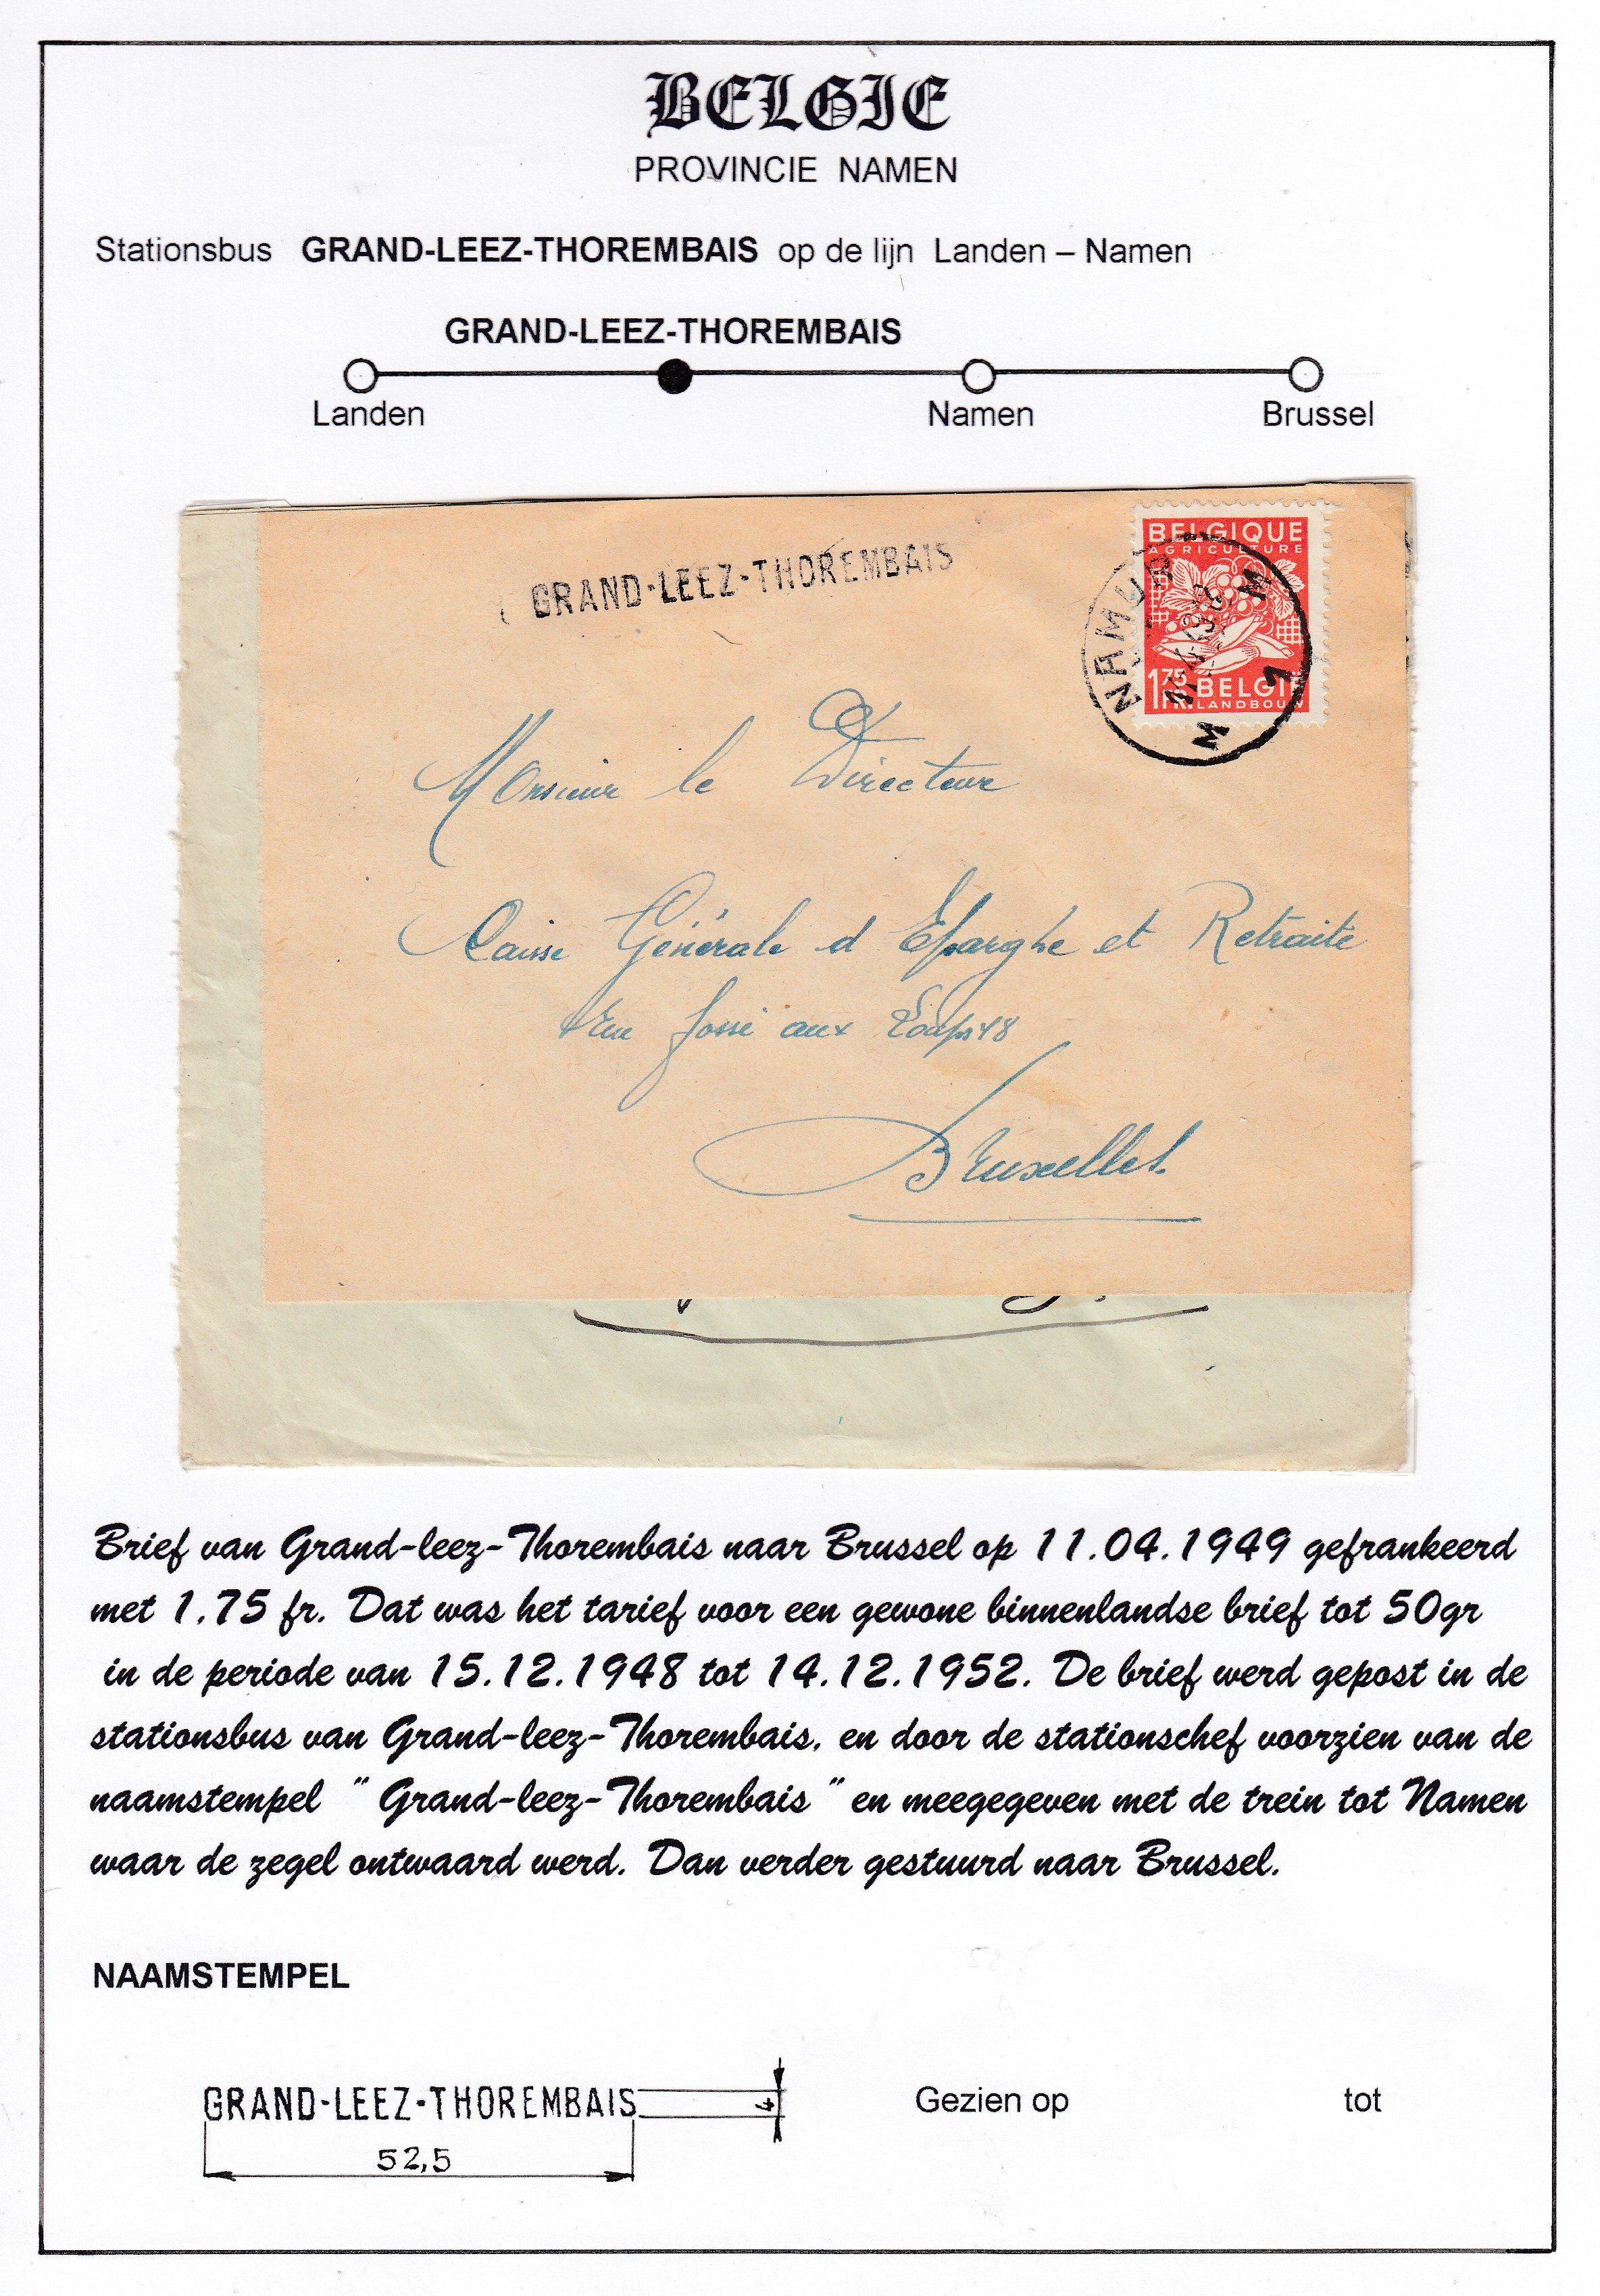 BELGIE
PROVINCIE NAMEN
Stationsbus GRAND-LEEZ-THOREMBAIS op de lijn Landen – Namen
GRAND-LEEZ-THOREMBAIS
Landen Namen Brussel
GRAND-LEEZ-THOREMBAIS
BELGIQUE
AGRICULTURE
1.75 FR. BELGI
LANDBOUW
NAMUR 1
M 1 M
Monsieur le Directeur
Caisse Générale d Eparghe et Retraite
Rue fossé aux Loups 48
Bruxelles.
Brief van Grand-leez-Thorembais naar Brussel op 11.04.1949 gefrankeerd
met 1.75 fr. Dat was het tarief voor een gewone binnenlandse brief tot 50gr
in de periode van 15.12.1948 tot 14.12.1952. De brief werd gepost in de
stationsbus van Grand-leez-Thorembais, en door de stationschef voorzien van de
naamstempel " Grand-leez-Thorembais " en meegegeven met de trein tot Namen
waar de zegel ontwaard werd. Dan verder gestuurd naar Brussel.
NAAMSTEMPEL
GRAND-LEEZ-THOREMBAIS 4 Gezien op tot
52,5